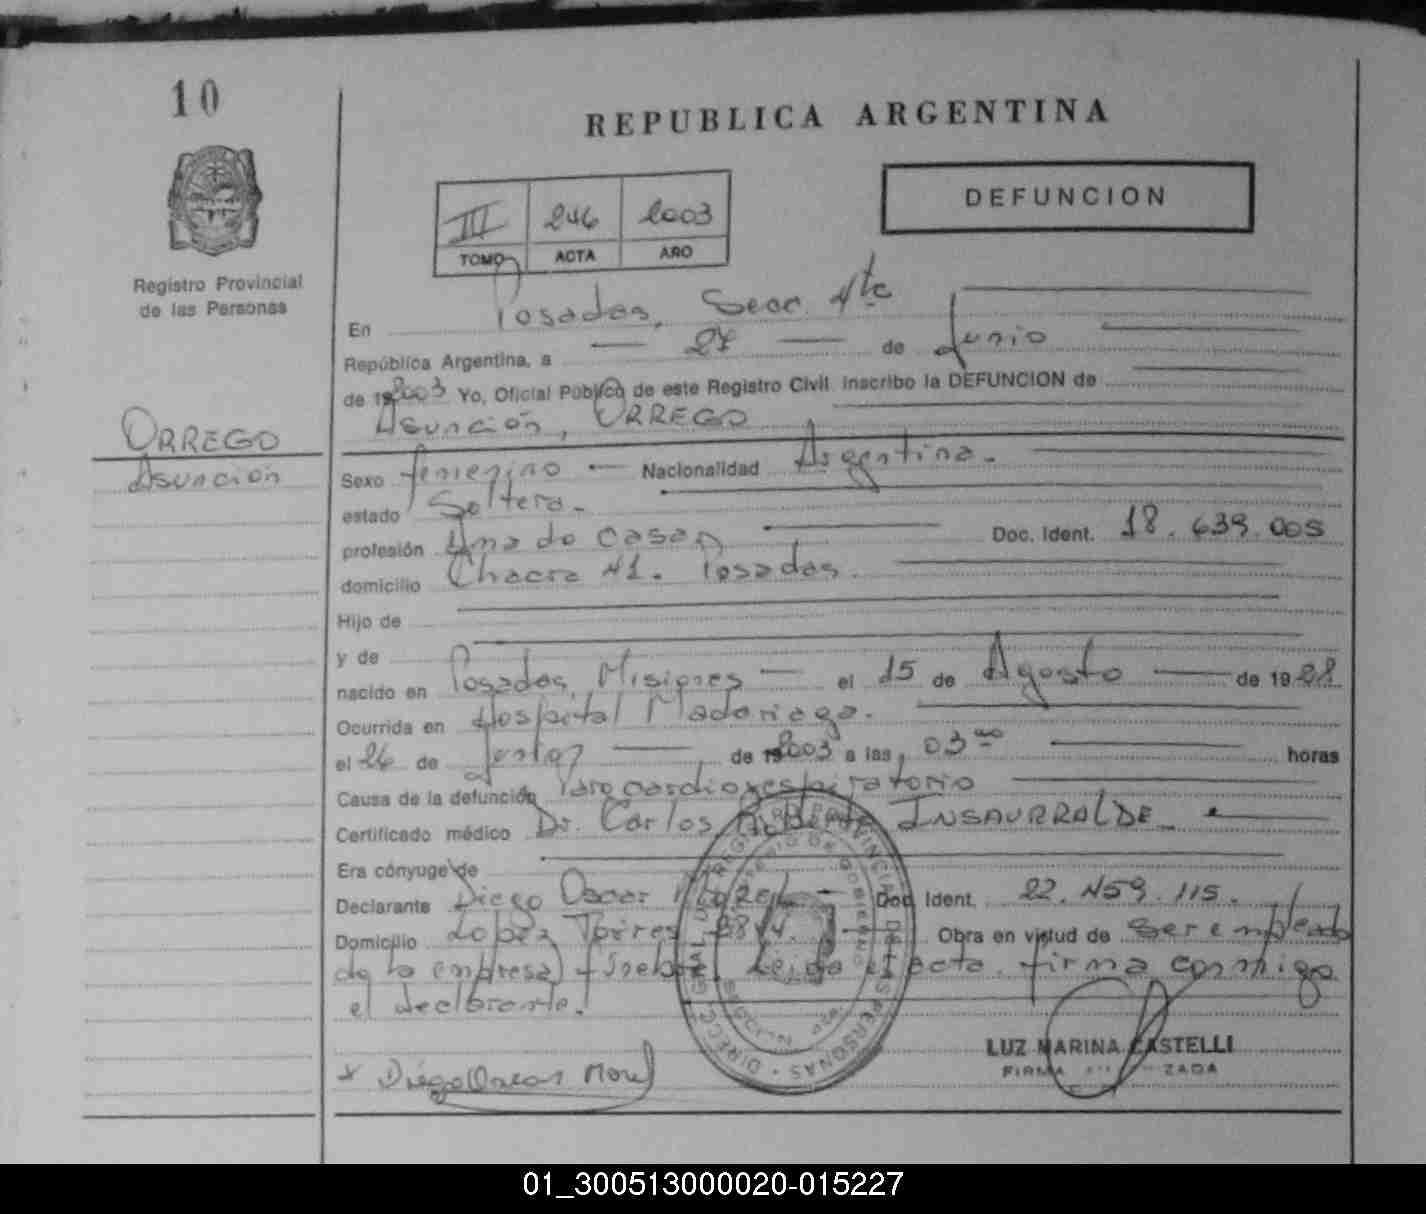 10
REPUBLICA ARGENTINA
DEFUNCION
III 246 2003
TOMO ACTA AÑO
Registro Provincial
de las Personas
En Posadas, Secc. 4ta
República Argentina, a 27 de Junio
de 19 2003 Yo, Oficial Público de este Registro Civil inscribo la DEFUNCION de
Asunción, ORREGO
ORREGO
Asunción
Sexo femenino Nacionalidad Argentina.
estado Soltera.
profesión Ama de casa Doc. Ident. 18.639.005
domicilio Chacra 41. Posadas.
Hijo de
y de
nacido en Posadas, Misiones el 15 de Agosto de 19 28
Ocurrida en Hospital Madariaga.
el 26 de Junio de 19 2003 a las 03 00 horas
Causa de la defunción Paro cardiorespiratorio
Certificado médico Dr. Carlos INSAURRALDE
Era cónyuge de
Declarante Diego Oscar MOREL Doc. Ident. 22.459.115.
Domicilio Lopez Torres Obra en virtud de ser empleado
de la empresa Leida el acta firma conmigo
el declarante.
Diego Oscar Morel
LUZ MARINA CASTELLI
FIRMA ZADA
01_300513000020-015227